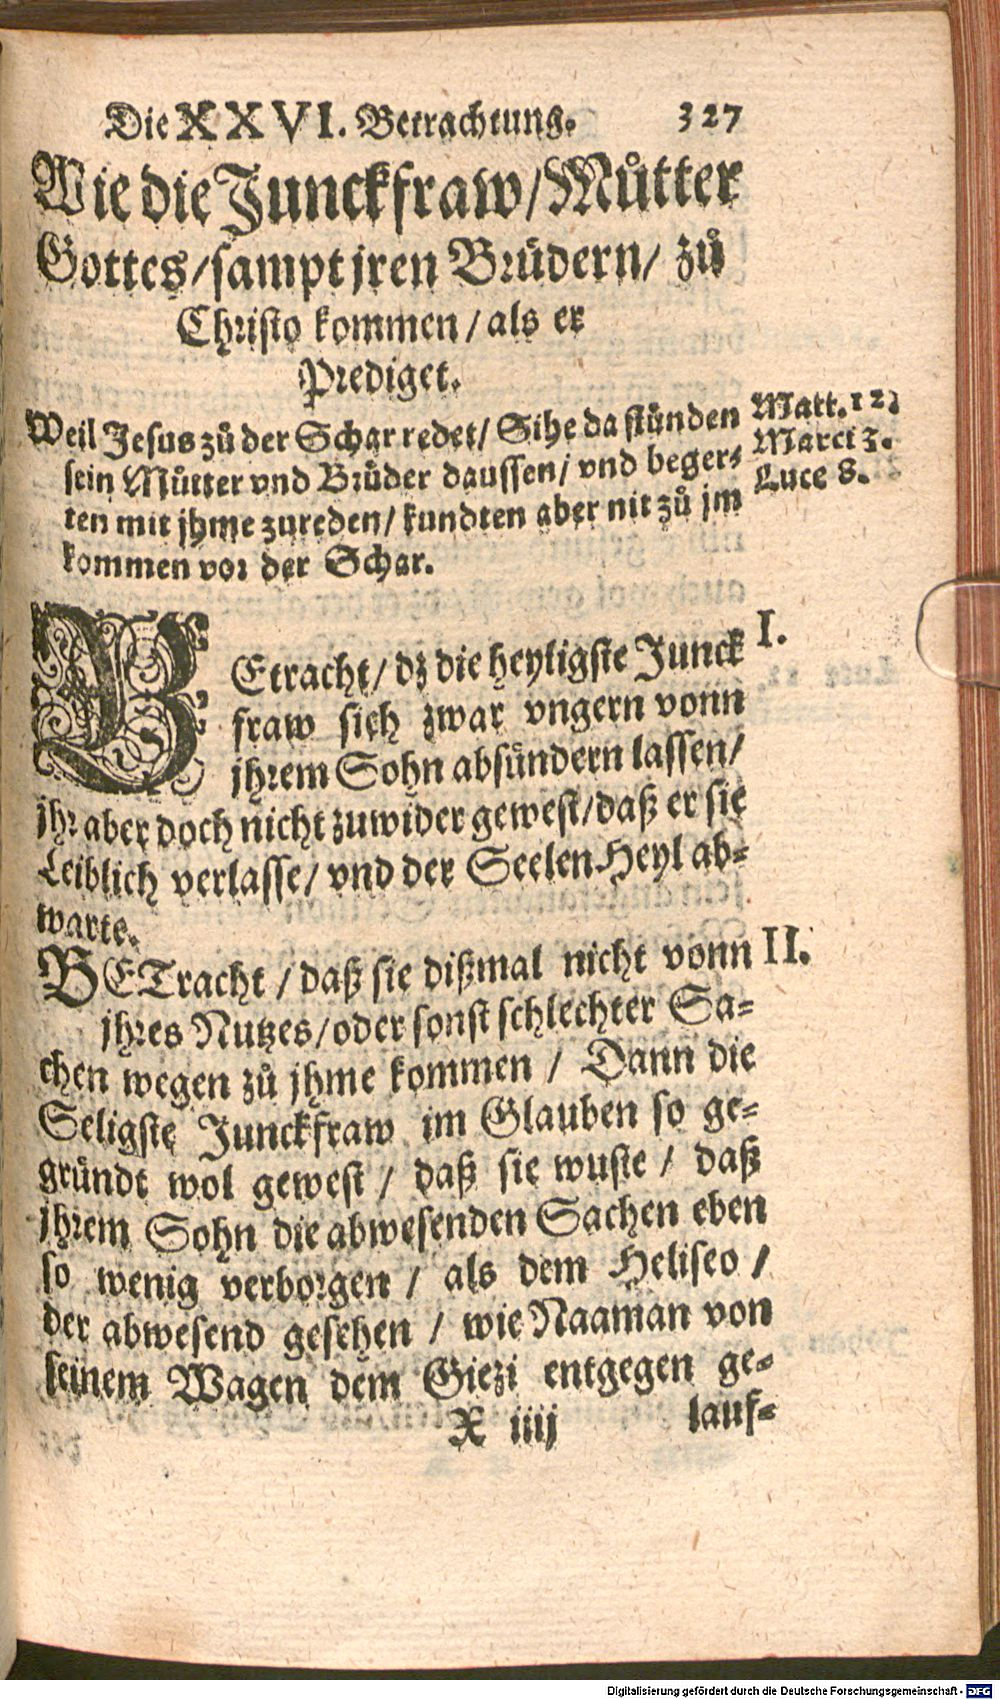 Die XXVI. Betrachtung. 327
Wie die Junckfraw/Můtter
Gottes/sampt jren Brůdern/ zů
Christo kommen/als er
Prediget.
Weil Jesus zů der Schar redet/ Sihe da stůnden
sein Můtter vnd Brůder daussen/ vnd beger-
ten mit jhme zureden/ kundten aber nit zů jm
kommen vor der Schar.
Matt. 12.
Marci 3.
Luce 8.
BEtracht/ dz die heyligste Junck
fraw sich zwar vngern vonn
jhrem Sohn absündern lassen/
jhr aber doch nicht zuwider gewest/daß er sie
Leiblich verlasse/ vnd der Seelen Heyl ab-
warte.
I.
BETracht/daß sie dißmal nicht vonn
jhres Nutzes/oder sonst schlechter Sa-
chen wegen zů jhme kommen/ Dann die
Seligste Junckfraw im Glauben so ge-
gründt wol gewest/ daß sie wuste/ daß
jhrem Sohn die abwesenden Sachen eben
so wenig verborgen/ als dem Heliseo/
der abwesend gesehen/ wie Naaman von
seinem Wagen dem Giezi entgegen ge-
II.
X iiij lauf-
Digitalisierung gefördert durch die Deutsche Forschungsgemeinschaft - DFG